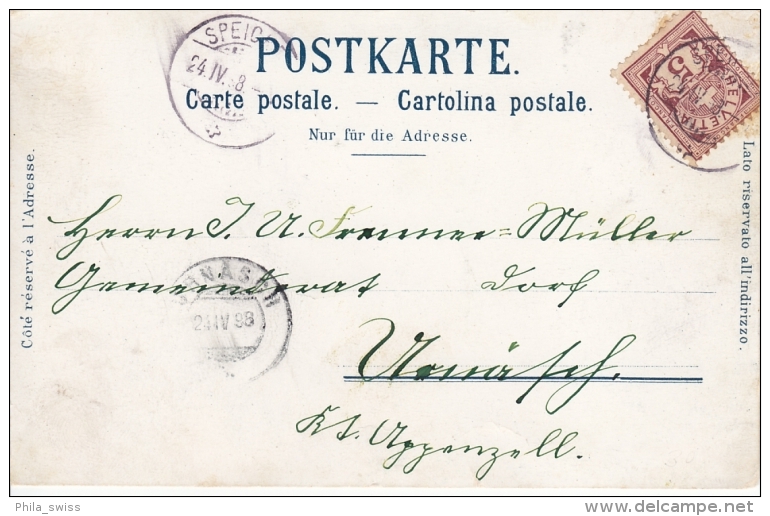 SPEIC
24.IV.98
POSTKARTE.
Carte postale. — Cartolina postale.
Nur für die Adresse.
5
HELVETIA
Côté réservé à l'Adresse.
Lato riservato all'indirizzo.
Herrn J. U. Frenner=Müller
Gemeinderat Dorf
URNÄSCH
24 IV 98
Urnäsch.
Kt. Appenzell.
Phila_swiss
delcampe.net